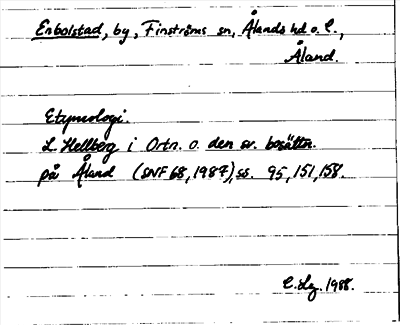 Enbolstad, by, Finströms sn, Ålands hd o. l.,
Åland.
Etymologi.
L. Hellberg i Ortn. o. den sv. bosättn.
på Åland (SNF 68, 1987), ss. 95, 151, 158.
1988.